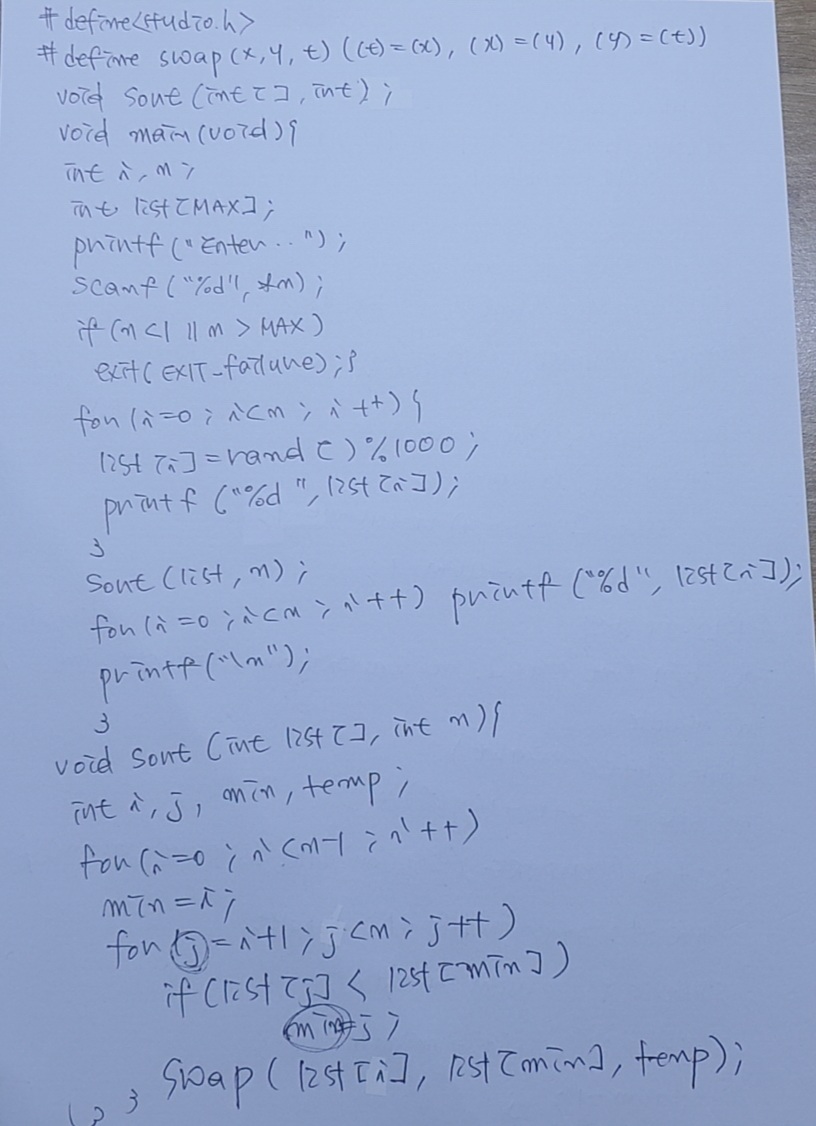 #define<studio.h>
#define swap(x,y,t) ((t)=(x), (x)=(y), (y)=(t))
void sort(int[],int);
void main(void){
int i,n;
int list[MAX];
printf("Enter..");
scanf("%d",&n);
if(n<1||n>MAX)
exit(EXIT_failure);}
for(i=0;i<n;i++){
list[i]=rand()%1000;
printf("%d ",list[i]);
}
sort(list,n);
for(i=0;i<n;i++) printf("%d",list[i]);
printf("\n");
}
void sort(int list[],int n){
int i,j,min,temp;
for(i=0;i<n-1;i++)
min=i;
for(j=i+1;j<n;j++)
if(list[j]<list[min])
min=j;
swap(list[i],list[min],temp);
}